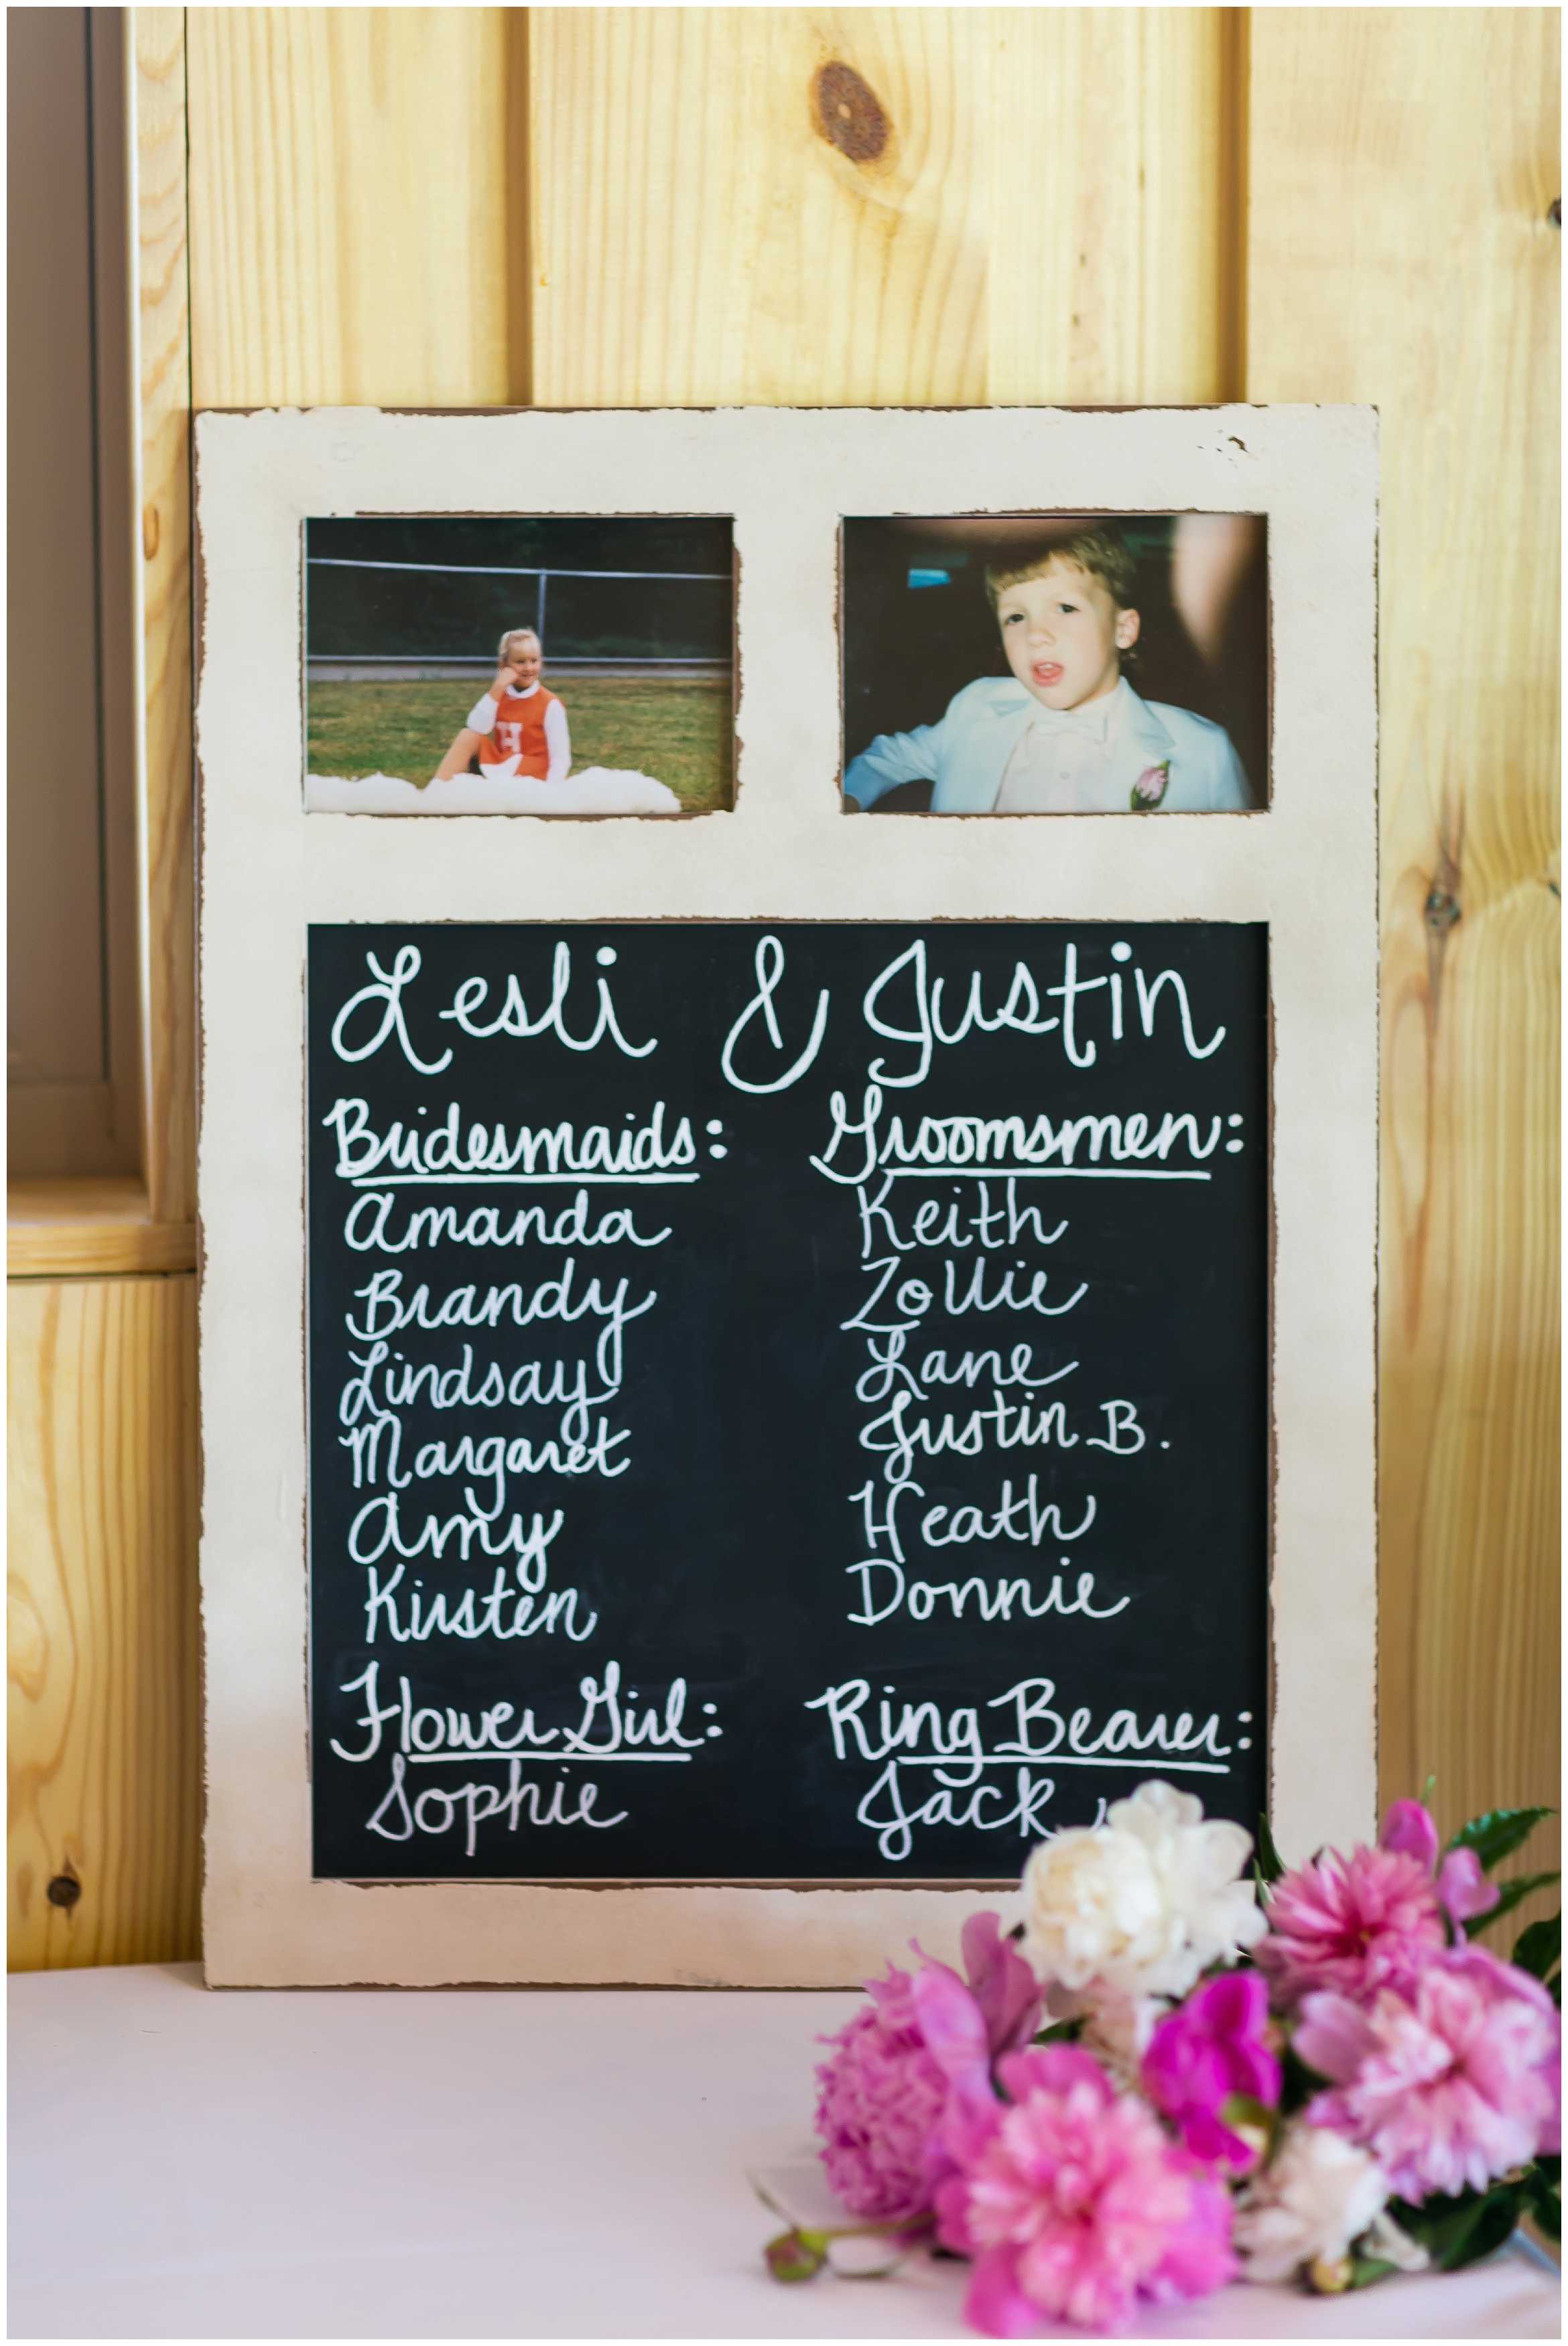 H
Lesli & Justin
Bridesmaids:
Amanda
Brandy
Lindsay
Margaret
Amy
Kirsten
Flower Girl:
Sophie
Groomsmen:
Keith
Zollie
Lane
Justin B.
Heath
Donnie
Ring Bearer:
Jack